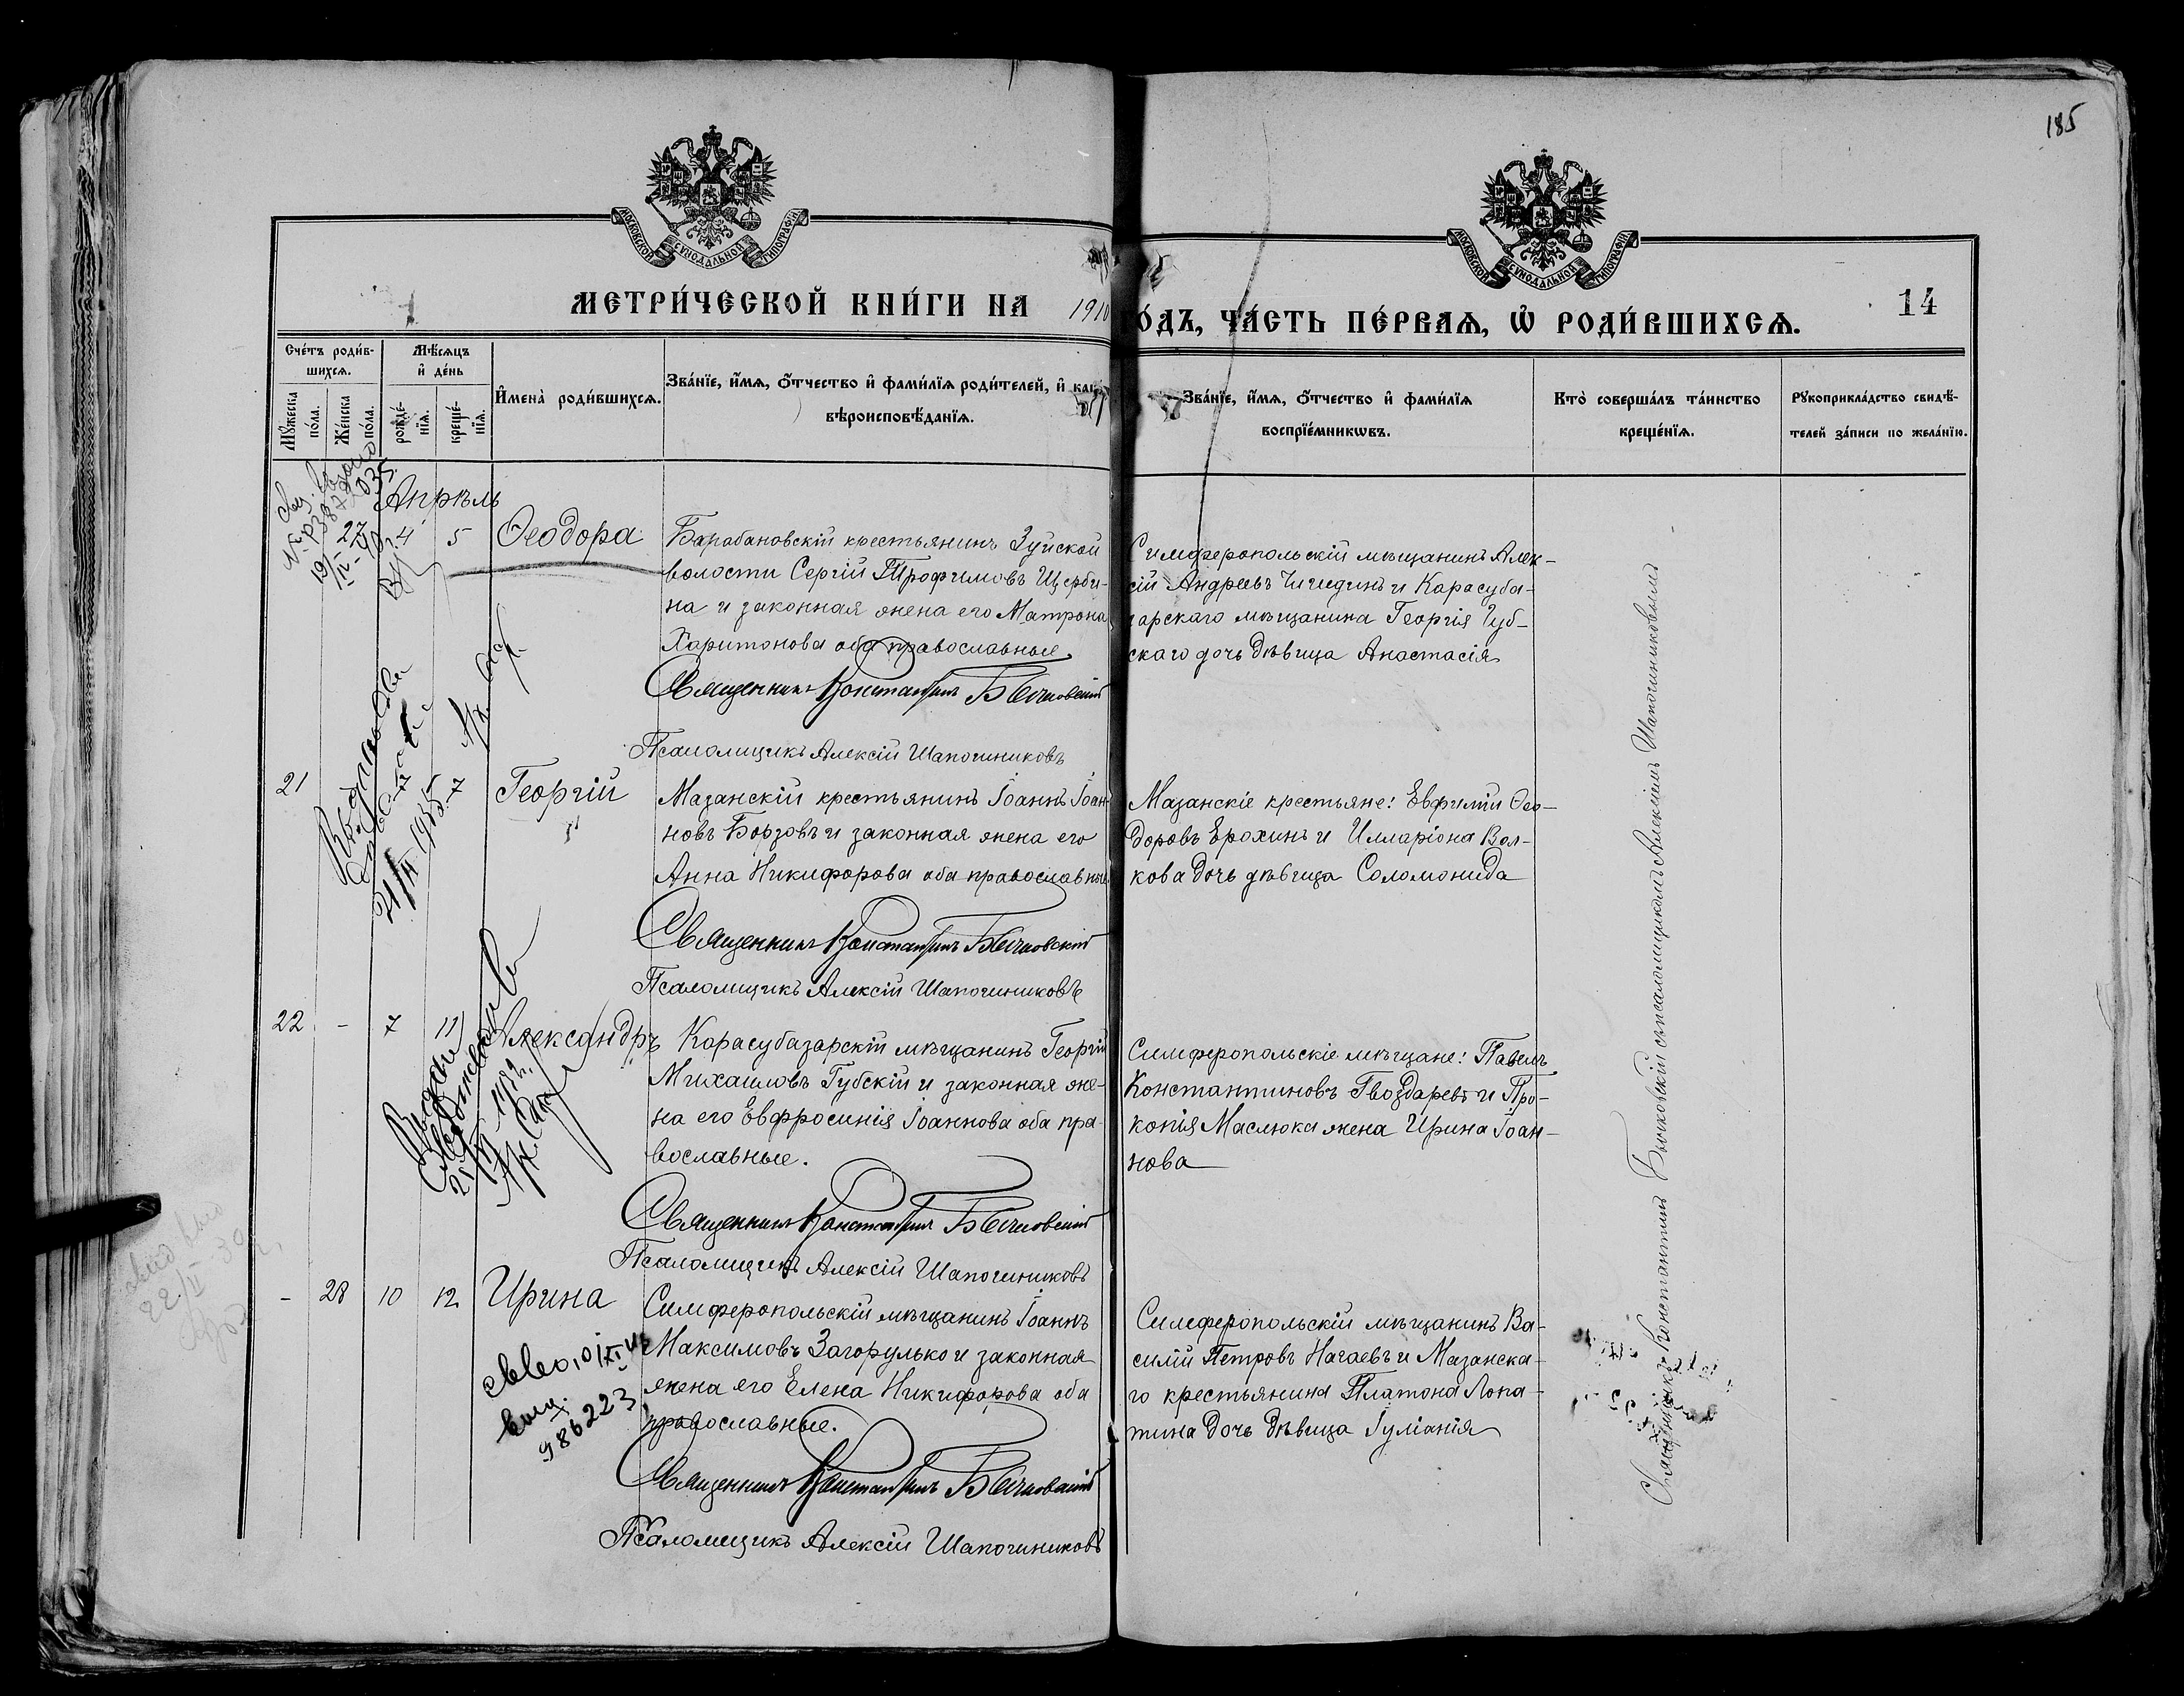 185
МОСКОВСКОЙ СѴНОДАЛЬНОЙ ТИПОГРАФІИ
МОСКОВСКОЙ СѴНОДАЛЬНОЙ ТИПОГРАФІИ
МЕТРИ́ЧЕСКОЙ КНИ́ГИ НА 1910
О́ДЪ, ЧА́СТЬ ПЕ́РВАѦ, Ѡ҆ РОДИ́ВШИХСѦ.
14
Сче́тъ роди́в-
шихсѧ.
Мꙋ́жеска по́ла.
Же́нска по́ла.
Мѣ́сѧцъ
и҆ де́нь
рожде́-
нїѧ.
креще́-
нїѧ.
И҆мена̀ роди́вшихсѧ.
Зва́нїе, и҆́мѧ, ѻ҆́тчество и҆ фами́лїѧ роди́телей, и҆
вѣроисповѣ́данїѧ.
Зва́нїе, и҆́мѧ, ѻ҆́тчество и҆ фами́лїѧ
воспрїе́мникѡвъ.
Кто̀ соверша́лъ та́инство
креще́нїѧ.
Рꙋкоприкла́дство свидѣ́-
телей за́писи по жела́нїю.
Апрѣль
27 4 5 Ѳеодора
Барабановскій крестьянинъ Зуйской
волости Сергій Трофимовъ Щерби-
на и законная жена его Матрона
Харитонова оба православные
Священникъ Константинъ Бычковскій
Псаломщикъ Алексій Шапочниковъ
Симферопольскій мѣщанинъ Алек-
сій Андреевъ и Карасуба-
зарскаго мѣщанина Георгія Губ-
скаго дочь дѣвица Анастасія
21 Георгій
Мазанскій крестьянинъ Іоаннъ Іоан-
новъ Борзовъ и законная жена его
Анна Никифорова оба православные
Священникъ Константинъ Бычковскій
Псаломщикъ Алексій Шапочниковъ
Мазанскіе крестьяне: Евфимій Ѳео-
доровъ Ерохинъ и Илларіона Вол-
кова дочь дѣвица Соломонида
22 - 7 11 Александръ
Карасубазарскій мѣщанинъ Георгій
Михаиловъ Губскій и законная же-
на его Евфросинія Іоаннова оба пра-
вославные.
Священникъ Константинъ Бычковскій
Псаломщикъ Алексій Шапочниковъ
Симферопольскіе мѣщане: Павелъ
Константиновъ Гвоздаревъ и Про-
копія Маслюка жена Ирина Іоан-
нова
- 28 10 12 Ирина
Симферопольскій мѣщанинъ Іоаннъ
Максимовъ Загорулько и законная
жена его Елена Никифорова оба
православные.
Священникъ Константинъ Бычковскій
Псаломщикъ Алексій Шапочниковъ
Симферопольскій мѣщанинъ Ва-
силій Петровъ Нагаевъ и Мазанска-
го крестьянина Платона Лопа-
тина дочь дѣвица Іуліанія
986223
Священникъ Константинъ Бычковскій съ псаломщикомъ Алексіемъ Шапочниковымъ